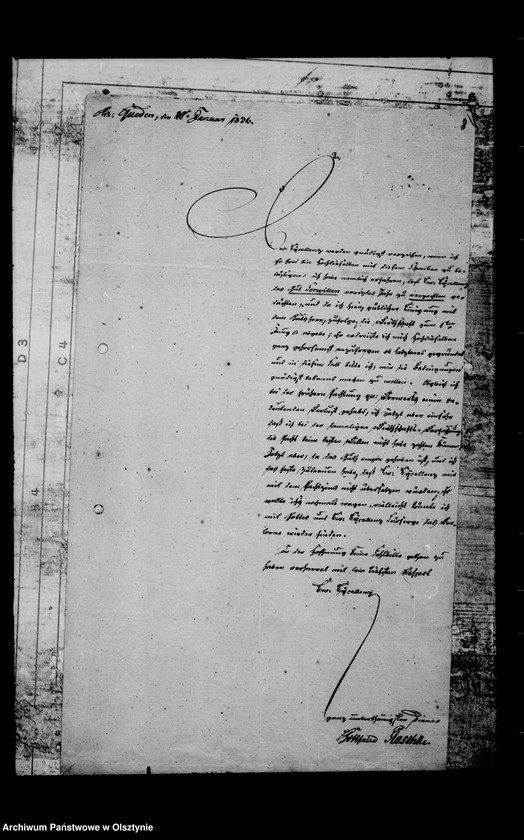 Queden, den Januar 1836.
8
Ew. Excellenz werden gnädigst verzeihen, wenn ich
es bei Hochdieselben mit diesem Schreiben zu be-
lästigen: ich habe nemlich erfahren, daß Ew. Excellenz
das Gut voriges Jahr zu verpachten ge-
dachten, und da ich hier, gütlicher Einigung mit
dem zufolge, die Wirthschaft zum
Juny c. abgebe; so erdreiste ich mich Hochdieselben
ganz gehorsamst anzufragen ob letzteres gegründet
und in diesem Fall bitte ich, mir die Bedingungen
gnädigst bekannt machen zu wollen. Obgleich ich
bei der frühern Pachtung einen be-
deutenden Verlust gehabt, ich jetzt aber
daß ich bei der damaligen Wirthschafts-
die Pacht beim besten Willen nicht habe zahlen können
Jetzt aber, da das Gut empor gehoben ist, und ich
das feste Zutrauen habe, daß Ew. Excellenz mich
mit dem Pachtzins nicht übersetzen würden, so
wollte ich es nochmals wagen, vielleicht könnte ich
mit Gottes und Ew. Excellenz Fürsorge das Ver-
lorne wieder finden.
In der Hoffnung keine Fehlbitte gethan zu
haben verharret mit dem tiefsten Respect
Ew. Excellenz
ganz unterthänigster Diener
Gottfried Raschke
D3
C4
Archiwum Państwowe w Olsztynie